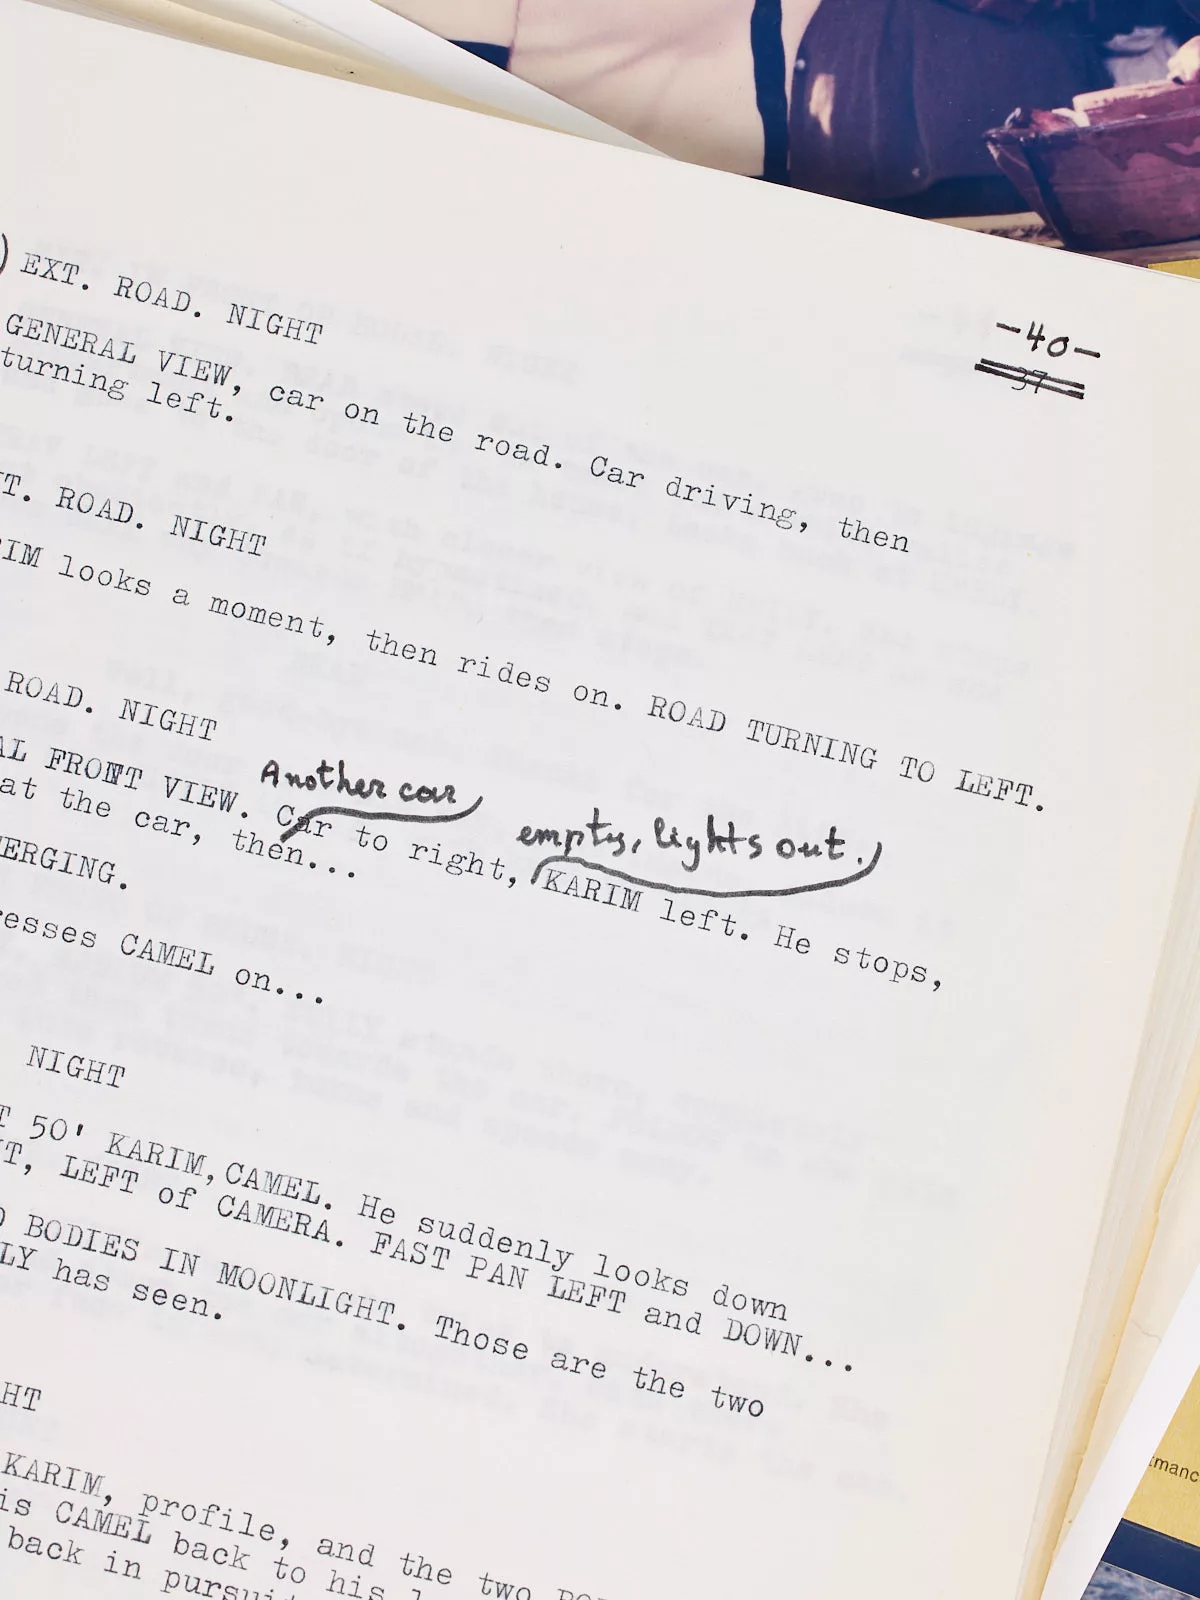 -40-
37
) EXT. ROAD. NIGHT
GENERAL VIEW, car on the road. Car driving, then
turning left.
T. ROAD. NIGHT
RIM looks a moment, then rides on. ROAD TURNING TO LEFT.
ROAD. NIGHT
Another car
empty, lights out.
AL FRONT VIEW. Car to right, KARIM left. He stops,
at the car, then...
ERGING.
resses CAMEL on...
NIGHT
T 50' KARIM, CAMEL. He suddenly looks down
T, LEFT of CAMERA. FAST PAN LEFT and DOWN...
O BODIES IN MOONLIGHT. Those are the two
LY has seen.
HT
KARIM, profile, and the two
is CAMEL back to his
back in pursuit
manc